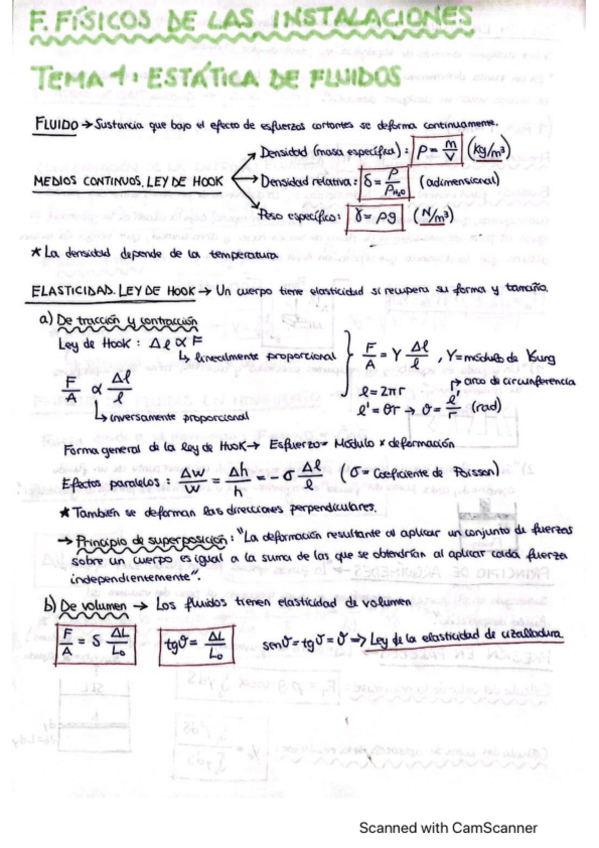 F. FÍSICOS DE LAS INSTALACIONES
TEMA 1: ESTÁTICA DE FLUIDOS
FLUIDO → Sustancia que bajo el efecto de esfuerzos cortantes se deforma continuamente.
MEDIOS CONTINUOS. LEY DE HOOK
Densidad (masa específica): ρ = m/V (kg/m³)
Densidad relativa: δ = ρ/ρH₂O (adimensional)
Peso específico: γ = ρg (N/m³)
* La densidad depende de la temperatura
ELASTICIDAD. LEY DE HOOK → Un cuerpo tiene elasticidad si recupera su forma y tamaño.
a) De tracción y contracción
Ley de Hook: Δl ∝ F
↳ linealmente proporcional
F/A ∝ Δl/l
↳ inversamente proporcional
F/A = Y Δl/l, Y = módulo de Young
l = 2πr
↱ arco de circunferencia
l' = θr → θ = l'/r (rad)
Forma general de la ley de Hook → Esfuerzo = Módulo × deformación
Efectos paralelos: Δw/w = Δh/h = -σ Δl/l (σ = Coeficiente de Poisson)
* También se deforman las direcciones perpendiculares.
→ Principio de superposición: "La deformación resultante al aplicar un conjunto de fuerzas
sobre un cuerpo es igual a la suma de las que se obtendrían al aplicar cada fuerza
independientemente".
b) De volumen → Los fluidos tienen elasticidad de volumen
F/A = S ΔL/L₀
tgθ = ΔL/L₀
senθ = tgθ = θ ⇒ Ley de la elasticidad de cizalladura
Scanned with CamScanner